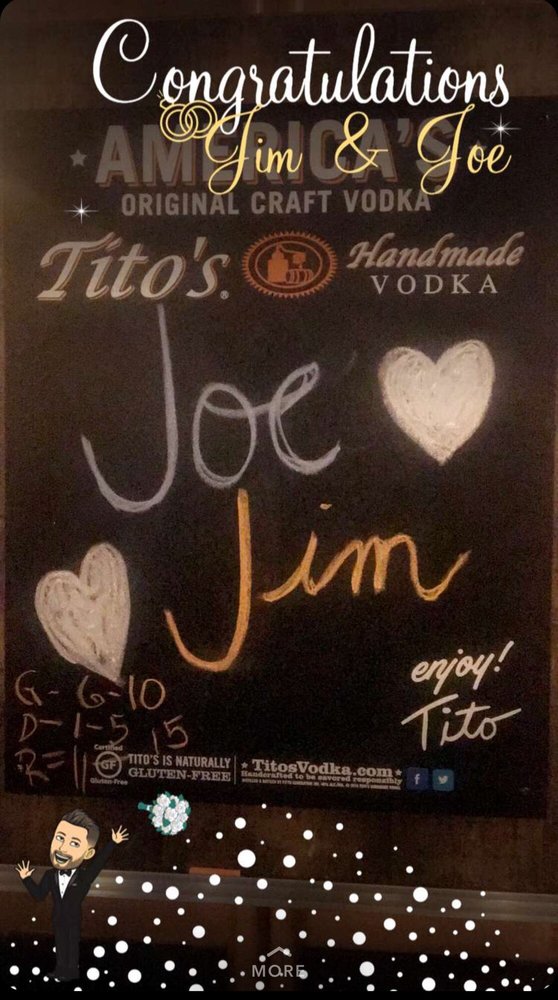 Congratulations
Jim & Joe
AMERICA'S
ORIGINAL CRAFT VODKA
Tito's® Handmade
VODKA
Joe
Jim
G - 6-10
D - 1-5 15
R = 11
enjoy!
Tito
Certified
GF
Gluten-Free
TITO'S IS NATURALLY
GLUTEN-FREE
TitosVodka.com
Handcrafted to be savored responsibly
MORE